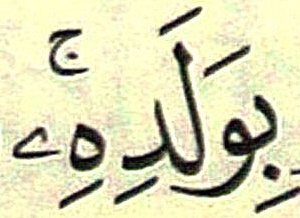 بِوَلَدِهِۦۚ